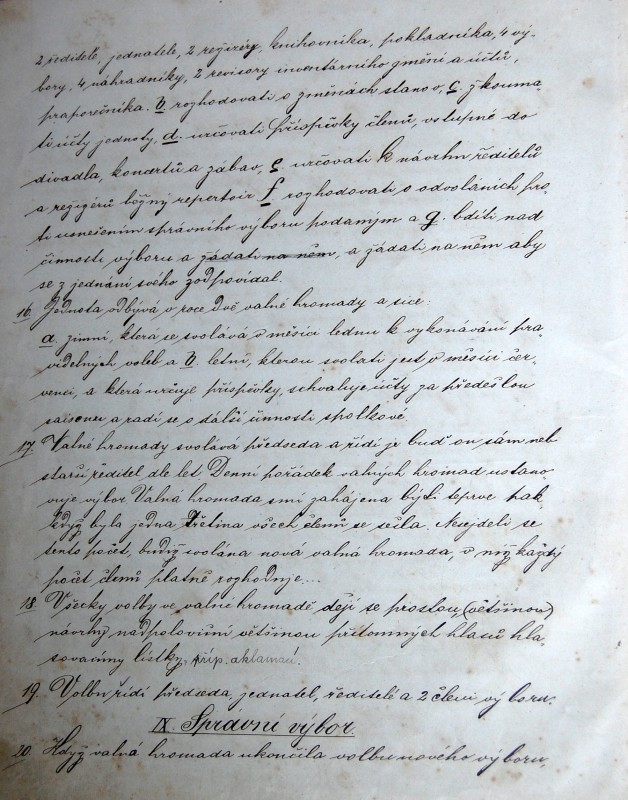 2 ředitele, jednatele, 2 režiséry, knihovníka, pokladníka, 4 vý-
bory, 4 náhradníky, 2 revisory inventárního jmění a účtů,
praporečníka. b. rozhodovati o změnách stanov, c. zkouma-
ti účty jednoty, d. určovati příspěvky členů, vstupné do
divadla, koncertů a zábav, e. určovati k návrhu ředitelů
a režisérů běžný repertoir f rozhodovati o odvoláních pro-
ti usnešením správního výboru podaným a g. bdíti nad
činností výboru a žádati na něm, a žádati na něm aby
se z jednání svého zodpovídal.
16. Jednota odbývá v roce dvě valné hromady a sice:
a. zimní, která se svolává v měsíci lednu k vykonávání pra-
videlných voleb a b. letní, kterou svolati jest v měsíci čer-
venci, a která určuje příspěvky, schvaluje účty za předešlou
saisonu a radí se o další činnosti spolkové.
17. Valné hromady svolává předseda a řídí je buď on sám neb
starší ředitel dle let. Denní pořádek valných hromad ustano-
vuje výbor. Valná hromada smí zahájena býti teprve tak-
když byla jedna třetina všech členů se sešla. Nesejdeli se
tento počet, budiž svolána nová valná hromada, v níž každý
počet členů platně rozhoduje...
18. Všecky volby ve valné hromadě dějí se prostou, (většinou)
návrhy nadpoloviční většinou přítomných hlasů hla-
sovacímy lístky, příp. aklamací.
19. Volbu řídí předseda, jednatel, ředitelé a 2 členi výboru.
IX. Správní výbor.
20. Když valná hromada ukončila volbu nového výboru,